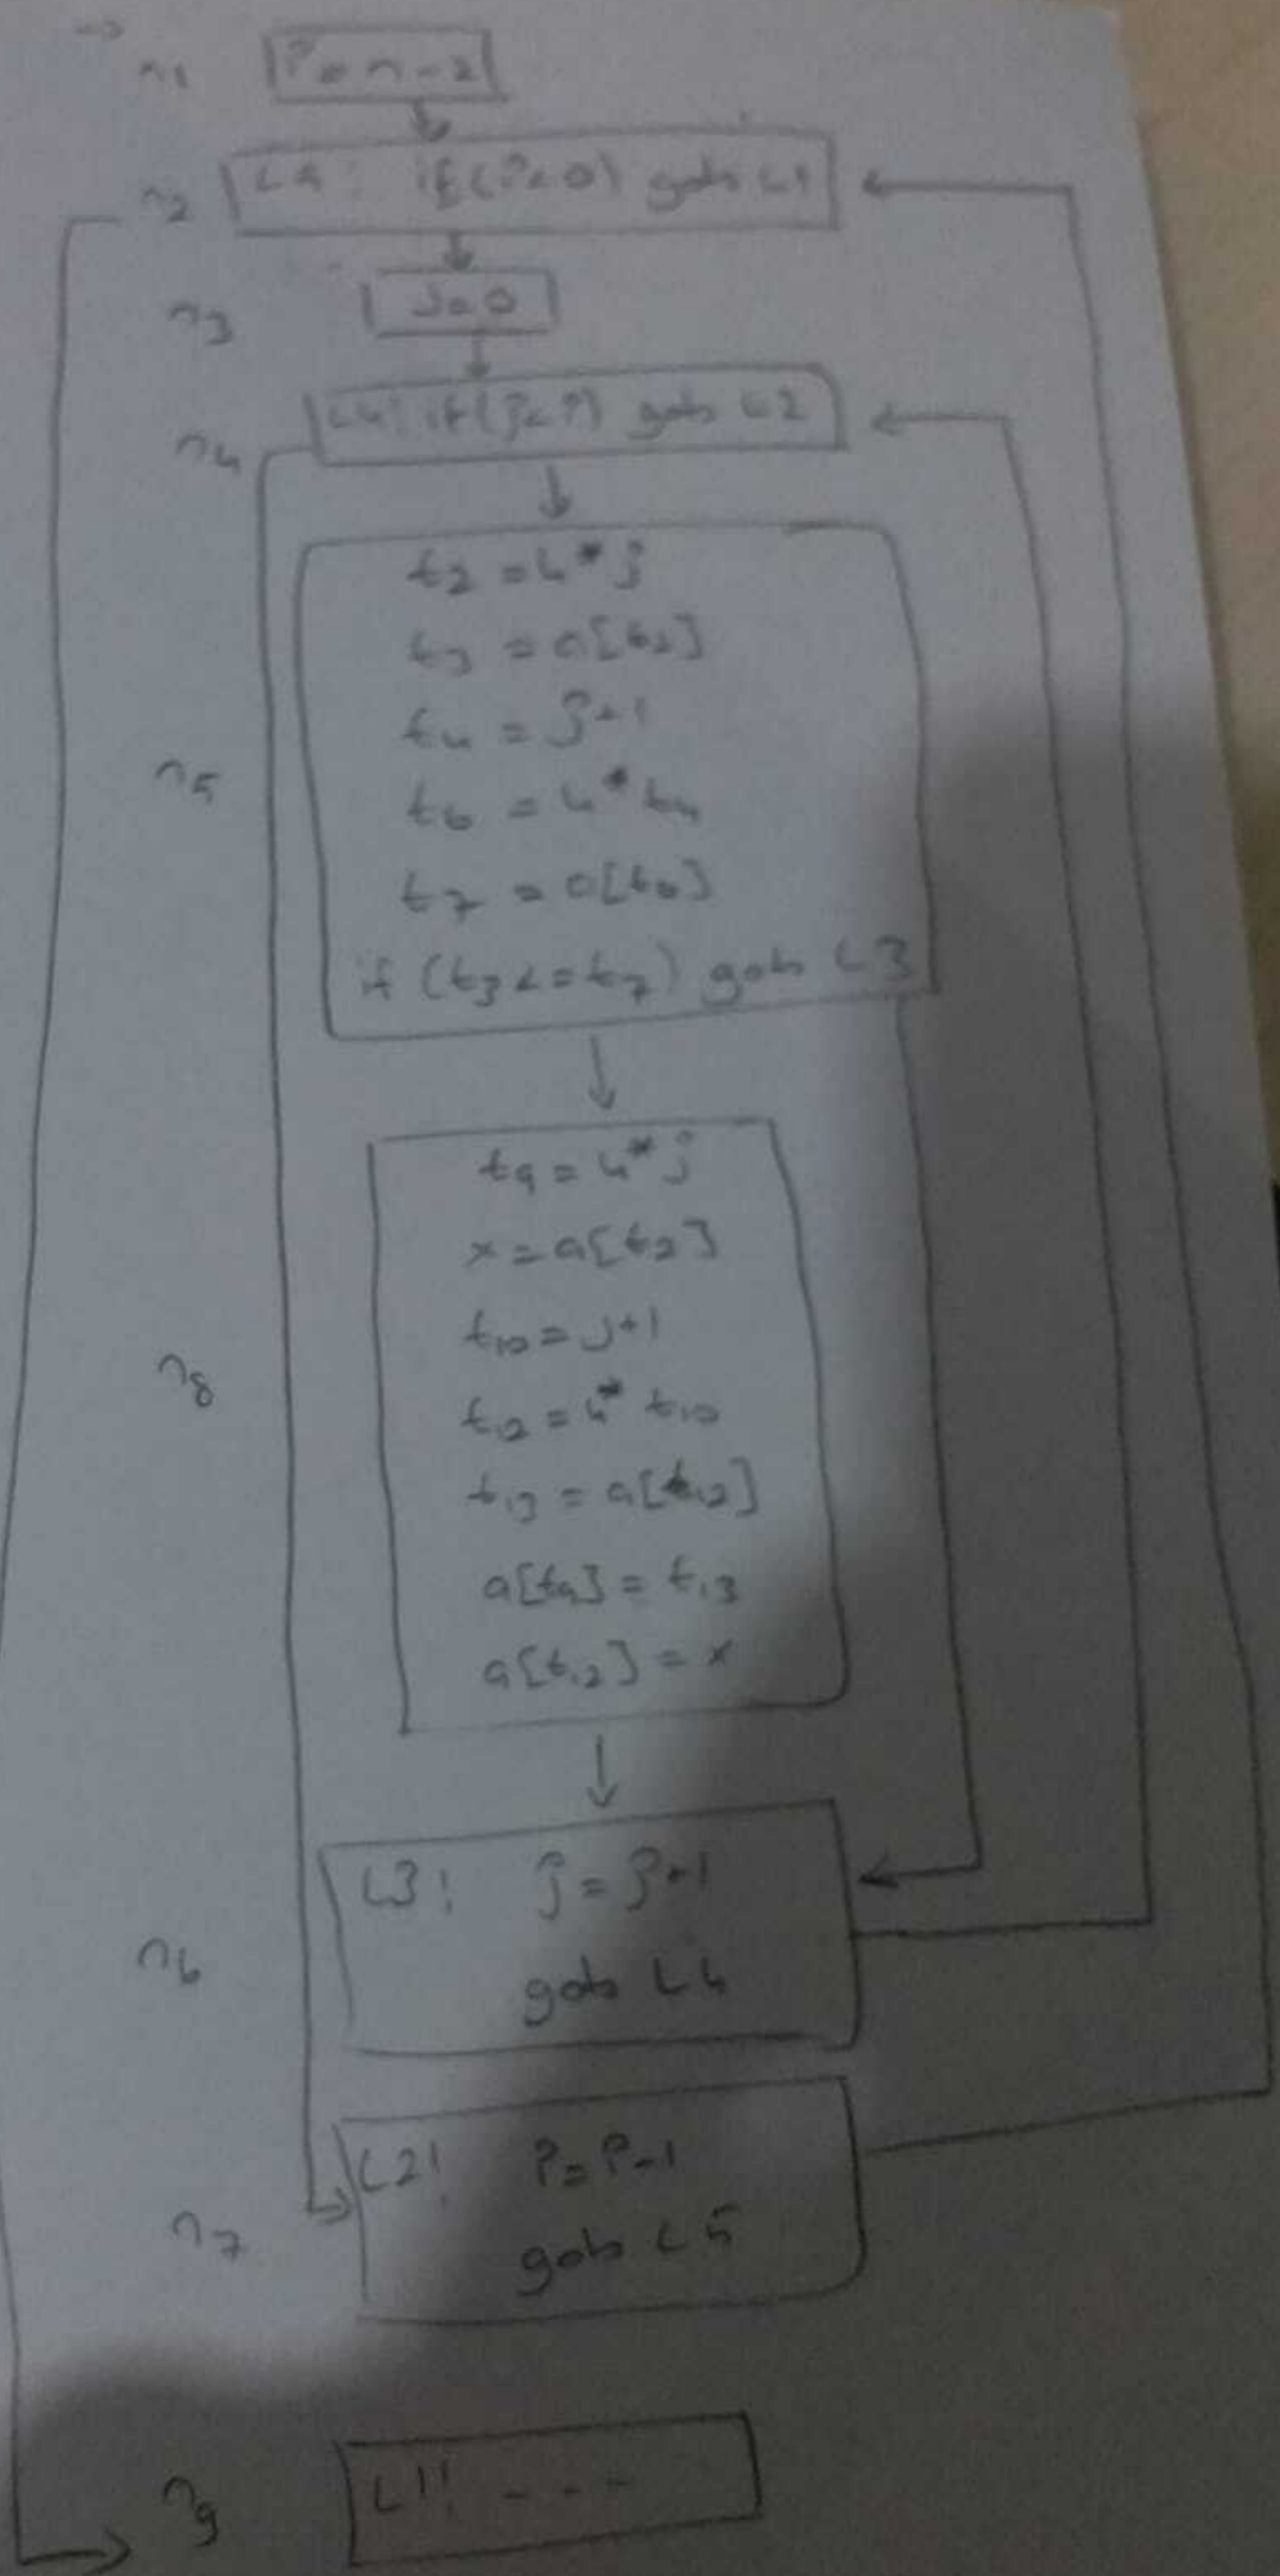 n1 i = n - 2
n2 L5: if (i<0) goto L1
n3 j=0
n4 L4: if (j<i) goto L2
t2 = 4*j
t3 = a[t2]
t4 = j+1
n5
t6 = 4*t4
t7 = a[t6]
if (t3 <= t7) goto L3
t9 = 4*j
x = a[t2]
t10 = j+1
n8
t12 = 4* t10
t13 = a[t12]
a[t9] = t13
a[t12] = x
L3: j = j+1
n6
goto L4
L2: i = i-1
n7
goto L5
n9 L1: - - -